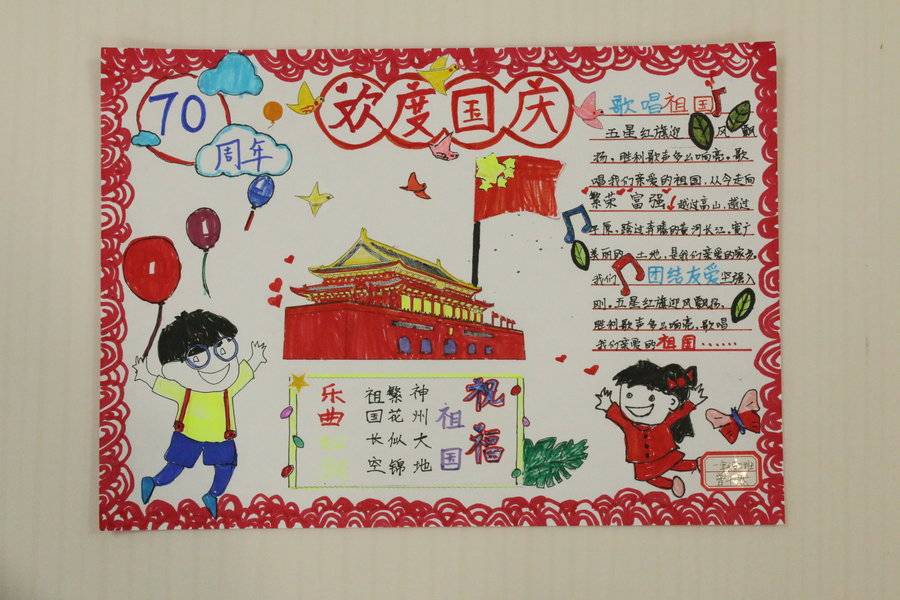 70
周年
欢度国庆
歌唱祖国
五星红旗迎风飘
扬，胜利歌声多么响亮。歌
唱我们亲爱的祖国，从今走向
繁荣富强！越过高山，越过
平原，跨过奔腾的黄河长江，宽广
美丽的土地，是我们亲爱的家乡。
我们团结友爱坚强入
刚，五星红旗迎风飘扬，
胜利歌声多么响亮，歌唱
我们亲爱的祖国……
祝福
祖国
神州大地
繁花似锦
祖国长空
乐曲